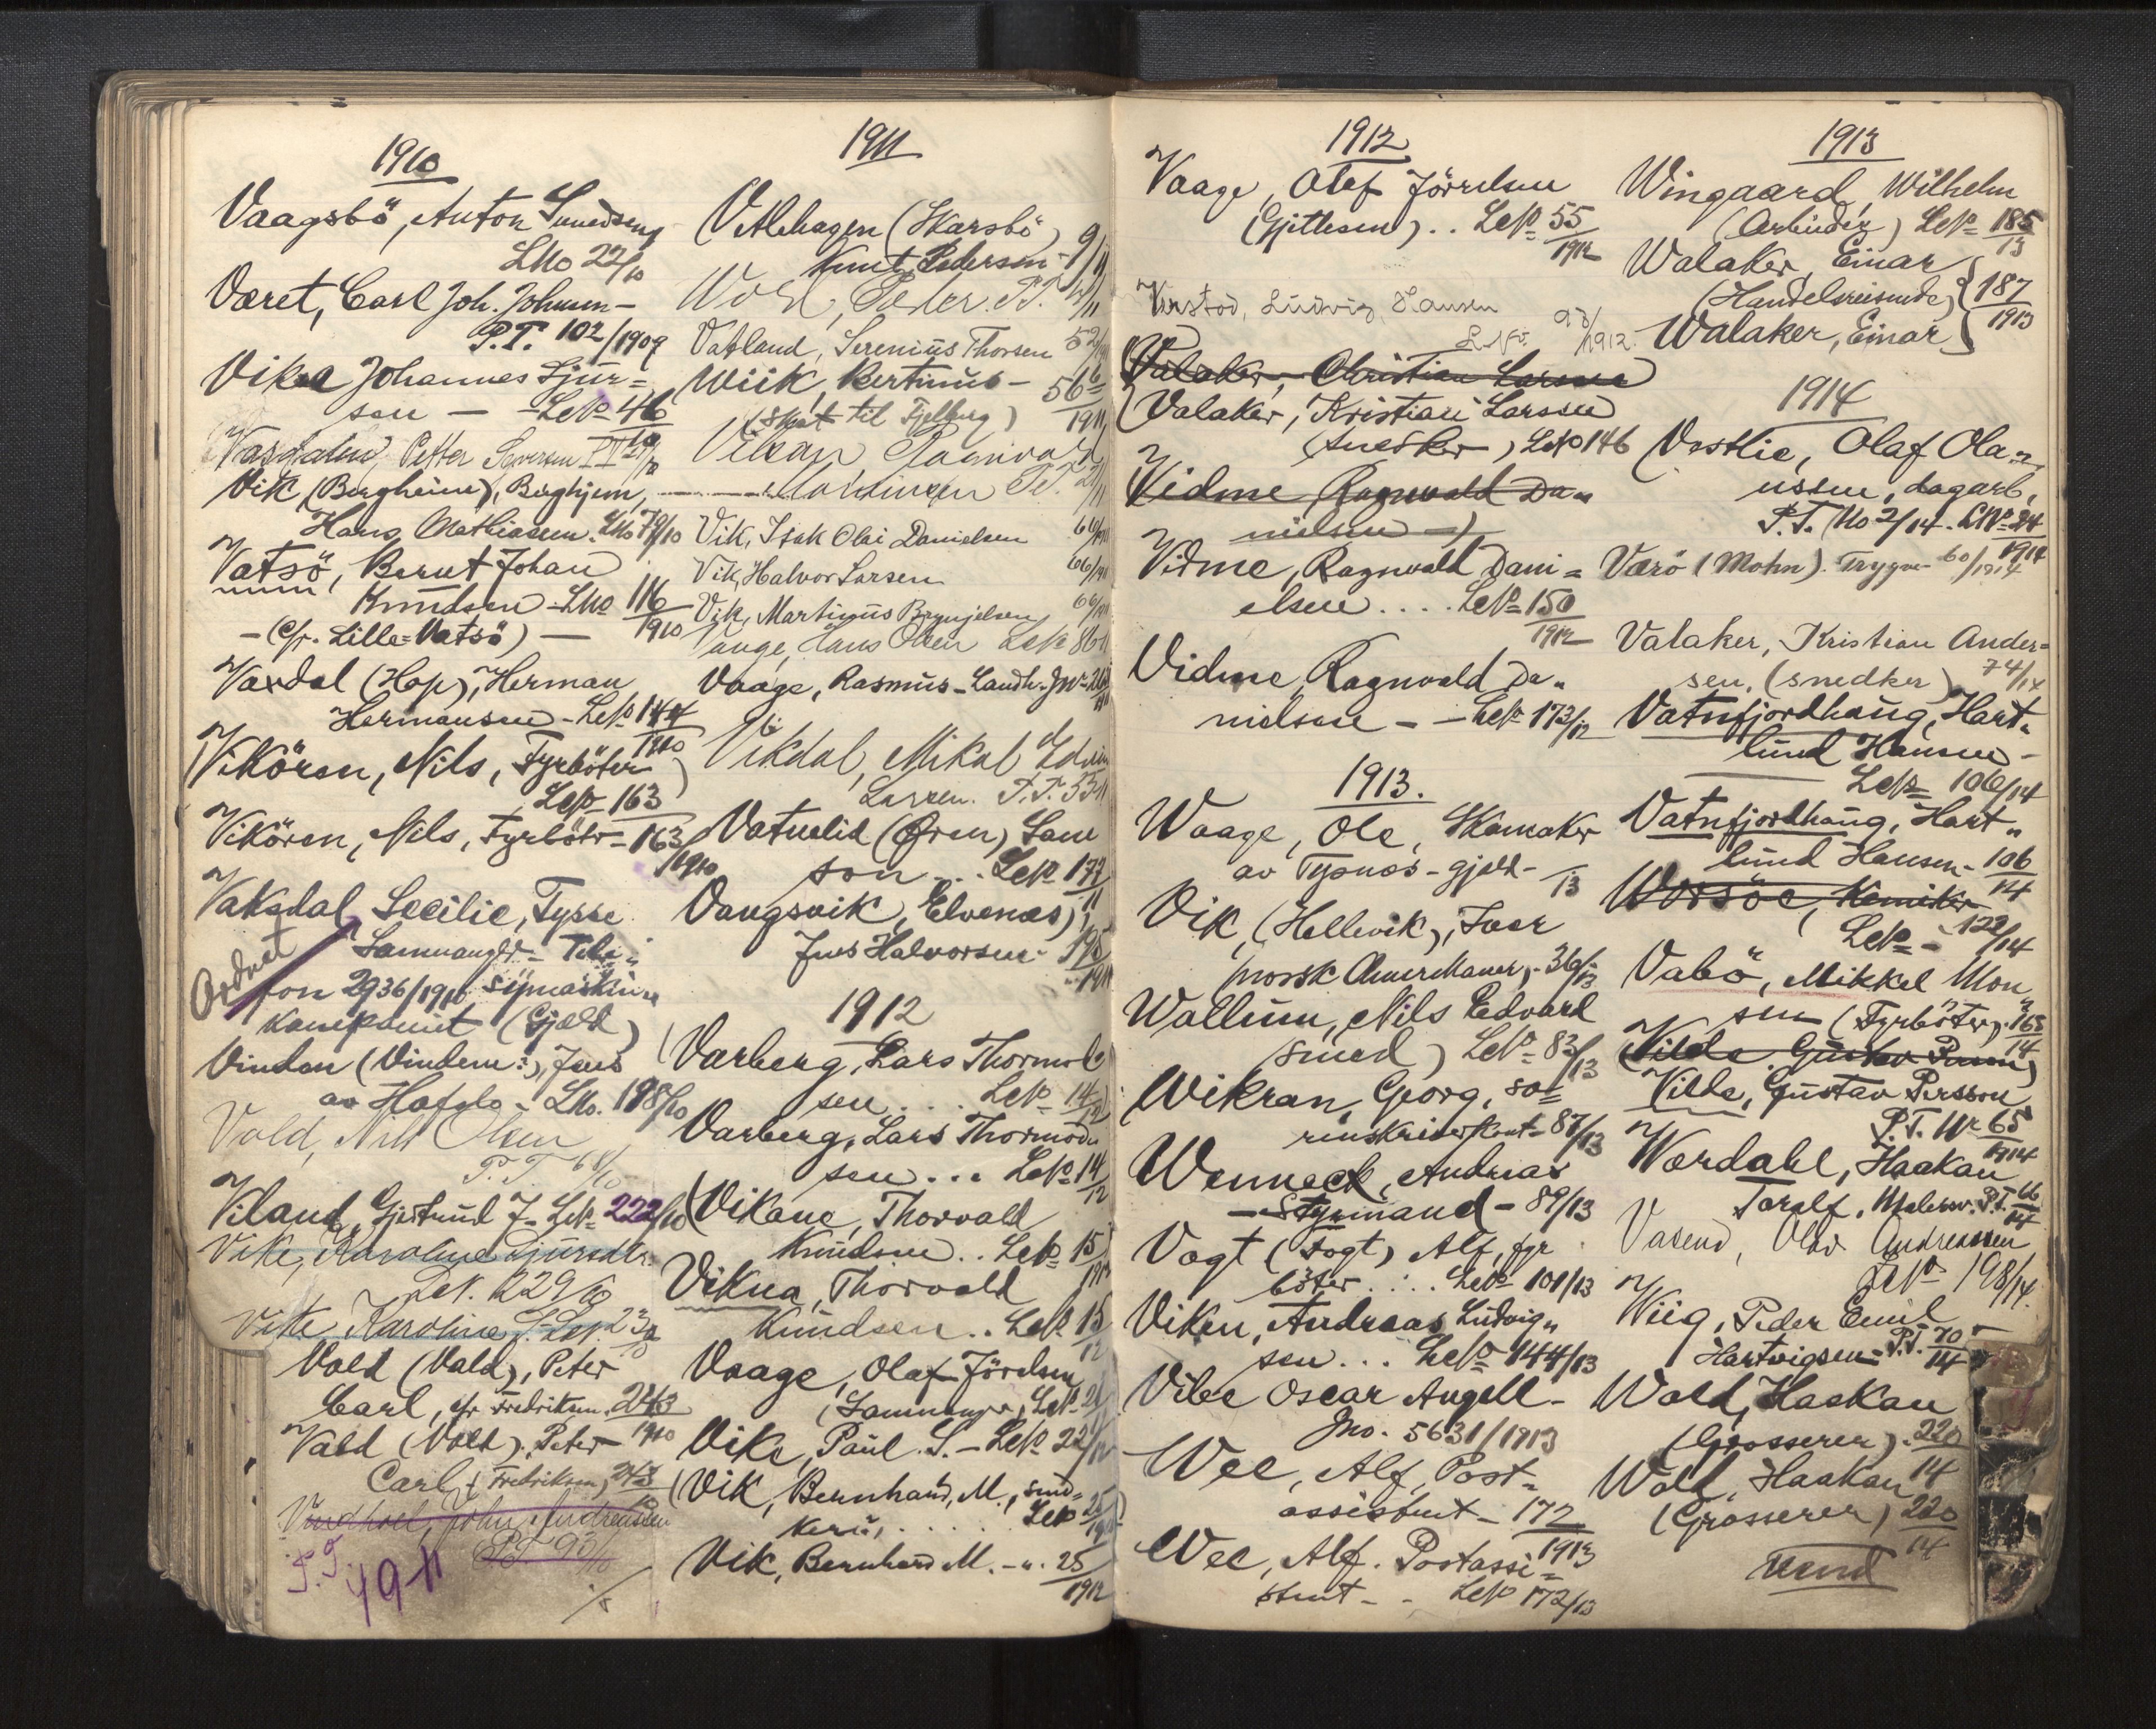 1910
Vaagsbö, Anton
LNo 22/10
Været, Carl Joh. Johnsen-
P.T. 102/1909
Vikea Johannes Sjur=
sen — -LNo 46
10
Petter Seversen P.T.
Vik (Bergheim), Berghjem,
Hans Mathiasen. LNo 79/10
Vatsö, Bernt Johan
Knudsen - LNo 116
1910
- (Cfr. Lille=Vatsö) —
Vaxdal (Hop), Herman
Hermansen - LNo 144
1910
(Vikören, Nils, Fyrböter)
LNo 163
Vikören, Nils, Fyrbötr - 163
1910
Vaksdal Cecilie, Tysse
Ordnet
Samnanger - Tele=
fon 2936/1910 Symaskine
kompanit (Gjæld)
Vinden (Vindem?), Jens
av Hafslo - LNo. 198/10
Vold, Nils Olsen
P.T. 68/10
Viland, Gjertrud J- LNo 222/10
Vike, Karoline Sjursdtr.
LNo. 229/10
Vike Karoline S. LNo. 23
10
Vold (Vald), Peter
Carl, cfr Fredriksen. 243
1910
Vald (Vold), Peter
Carl (Fredriksen) 243
10
John Andreassen
P.T. 93/10
P.T. 49-11
1911
Vetlehagen (Skarsbö) 9/11
Knut Pedersen
Vold, Peder. P.T.
Vatland, Serenius Thorsen 52/1911
Wiik, Bertinus - 56
1911
(Skjøt til Fjelberg)
Vikan Ragnvald
Martinsen P.T.
Vik, Isak Olai Danielsen 66/1911
Vik, Halvor Larsen 66/1911
Vik, Martinus Brynjelsen 66/1911
Vange, Hans Olsen LNo 86
Vaage, Rasmus - Landh. JNo
Vikdal, Mikal Edvin
Larsen. P.T. 53
Vatnelid (Øren) Lam
son ... LNo 177
11
Vangsvik (Elvenæs)
Jens Halvorsen - 195
1911
1912
(Varberg, Lars Thormod
sen . . . LNo 14
12)
Varberg, Lars Thormod
sen ... LNo 14
12
(Vikane, Thorvald
Knudsen .. LNo 15
1912
Vikna, Thorvald
Knudsen .. LNo 15
12
Vaage, Olaf Jörelsen
(Samnanger, LNo
Vike, Paul S. - LNo 22/12
(Vik, Bernhard, M., sned-
keri, . . . . . LNo 25
1912)
Vik, Bernhard M. - ". 25
1912
1912
Vaage, Olaf Jörrelsen
(Gjitlesen) .. LNo 55
1912
Verstod, Ludvig Hansen
LNo 98/1912.
(Valaker, Christian Larsen
(Valaker, Kristian Larssen
(snedker) LNo 146
Vidme (Ragnvald Da=
nielsen -)
Vidme, Ragnvald Dani=
elsen .... LNo 150
1912
Vidme Ragnvald Da=
nielsen - - LNo 173/12
1913.
Waage, Ole, Skomaker
av Tysnæs - gjeld - /13
Vik, (Hellevik), Iver
norsk Amerikaner, - 36/13
Wallum, Nils Edvard
smed) LNo 83/13
Wikran, Georg, so=
renskriverfmt - 87/13
Wenneck, Andreas
- Styrmand - 89/13
Vogt (Fogt) Alf, fyr
böter . : . . LNo 101/13
Viken, Andreas Ludvig=
sen ... LNo 144/13
Vibe Oscar Angell -
Jno. 5631/1913
Wee, Alf, Post=
assistent - 172
1913
Wee, Alf. Postassi=
stent - - LNo 172/13
1913
Wingaard, Wilhelm
(Arbeider) LNo 185
13
Walaker, Einar
(Handelsreisende) } 187
1913
Walaker, Einar
1914
(Vestlie, Olaf Ola=
ussen, dagarb,
P.T. No 2/14. LNo 24
1914
Værö (Mohn). Trygve 60/1914
Valaker, Kristian Ander=
sen, (snedker) 74/14
Vatnfjordhaug, Hart=
lund Hansen -
LNo 106/14
Vatnfjordhaug, Hart=
lund Hansen - 106
14
Worsöe, Kemiker
LNo - 122/14
Vabö, Mikkel Mon
sen (Fyrböter) 168
14
(Vilde, Gustav Person)
Vilde, Gustav Persson
P.T. Nr 65
1914
Wærdahl, Haakan
Toralf, Malersv. P.T. 66
14
Vasend, Olav Andreassen
LNo 198/14.
Wiig, Peder Emil
Hartvigsen = P.T. 70
14
Wold, Haakan
(Grosserer). 220
14
Wold, Haakan
(Grosserer) 220
14
Vend